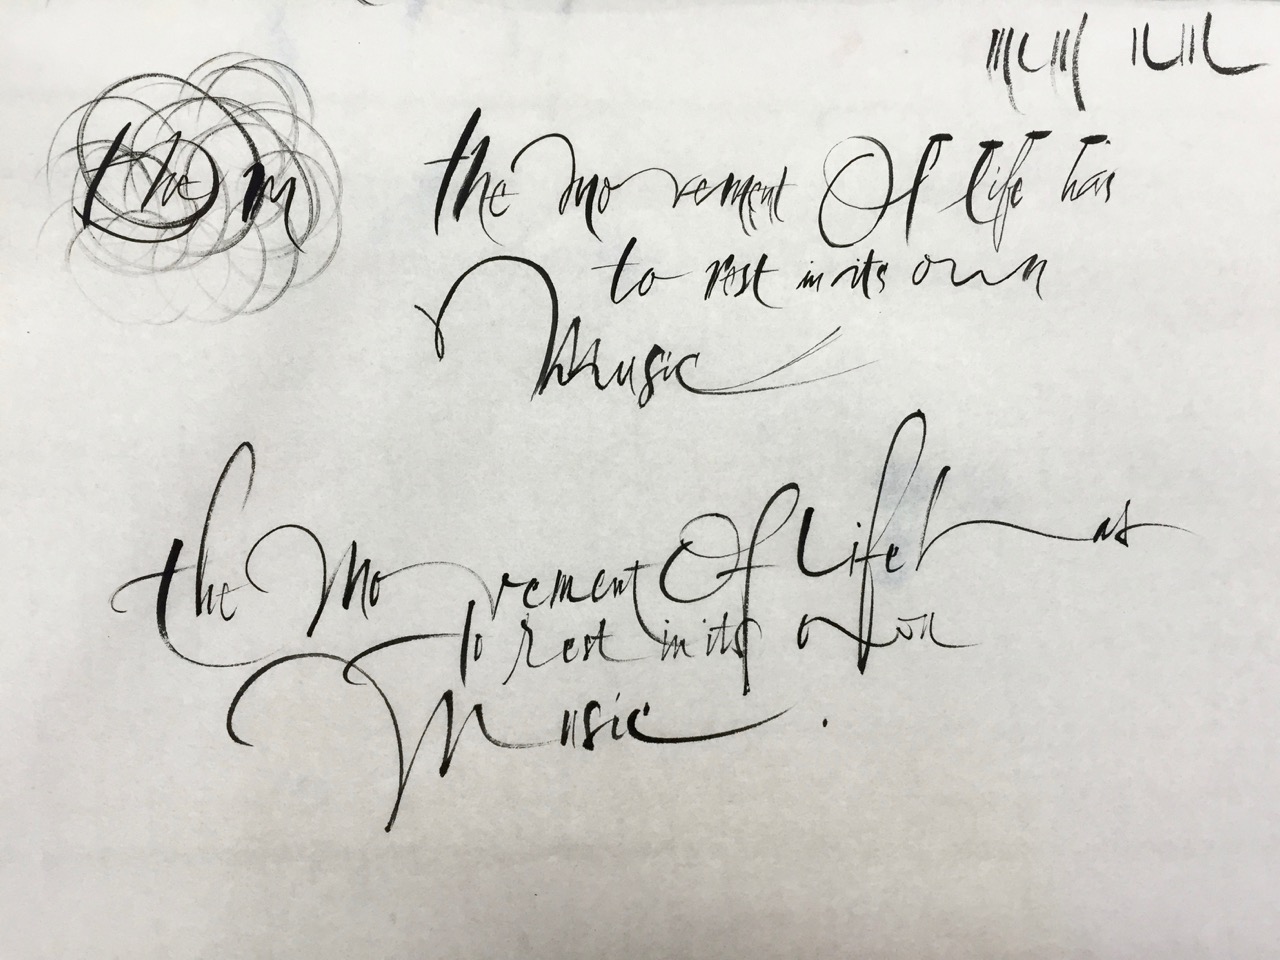 the m
the movement Of life has
to rest in its own
Music
the Movement Of Life has
to rest in its own
Music.